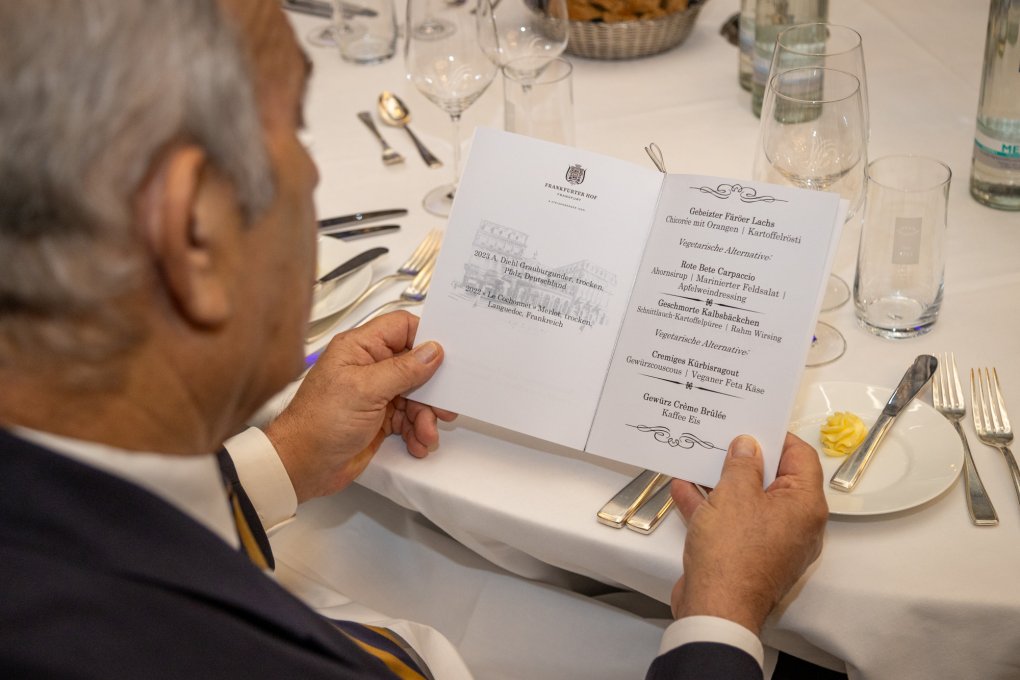 FRANKFURTER HOF
FRANKFURT
2023 A. Diehl Grauburgunder, trocken,
Pfalz, Deutschland
2022 « Le Cochonnet » Merlot, trocken
Languedoc, Frankreich
Gebeizter Färöer Lachs
Chicorée mit Orangen | Kartoffelrösti
Vegetarische Alternative:
Rote Bete Carpaccio
Ahornsirup | Marinierter Feldsalat |
Apfelweindressing
Geschmorte Kalbsbäckchen
Schnittlauch-Kartoffelpüree | Rahm Wirsing
Vegetarische Alternative:
Cremiges Kürbisragout
Gewürzcouscous | Veganer Feta Käse
Gewürz Crème Brûlée
Kaffee Eis